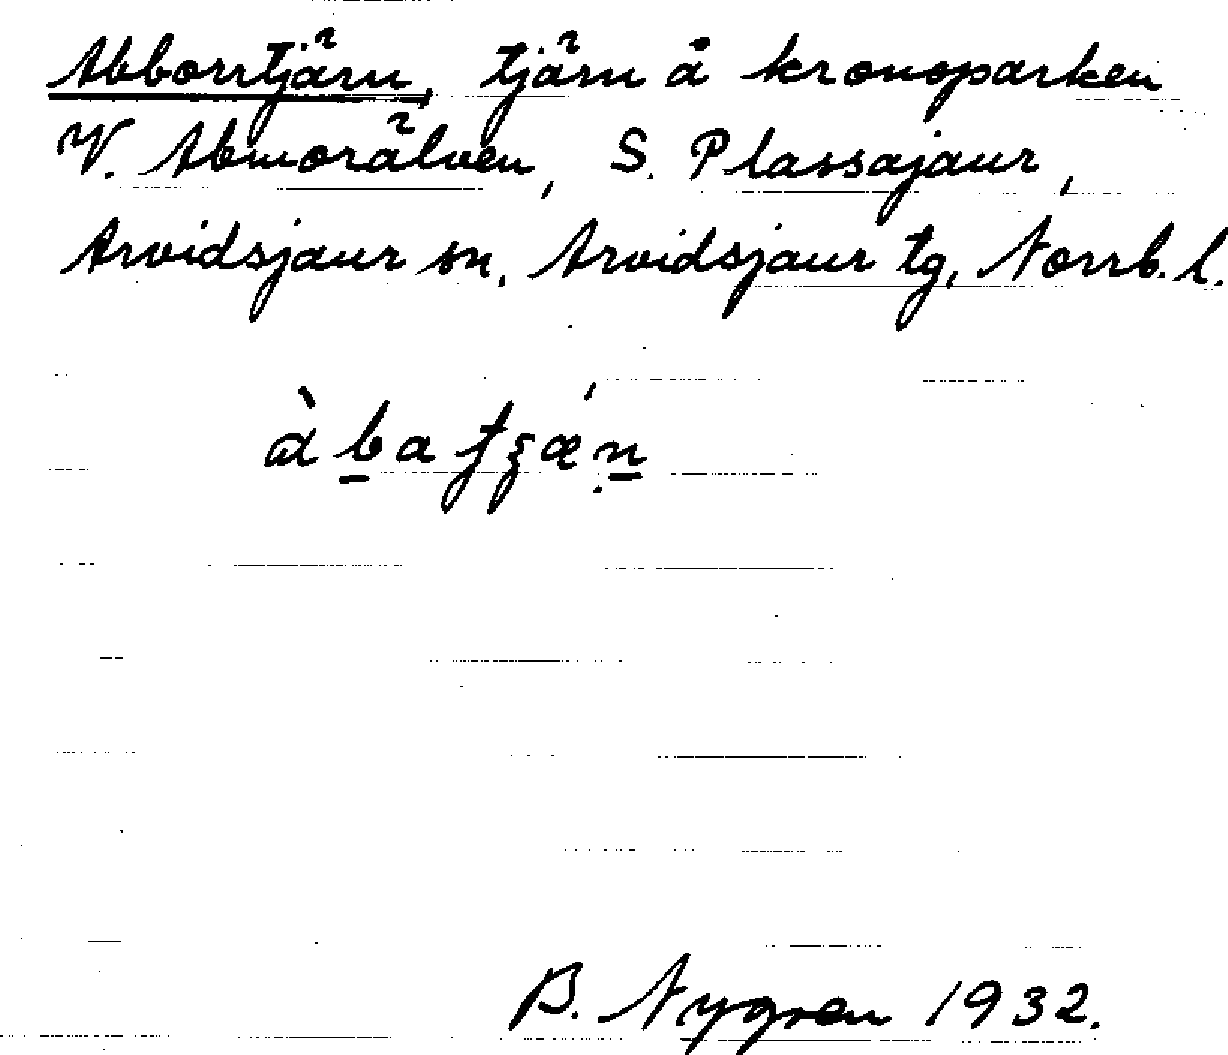 Abborrtjärn, tjärn å kronoparken
V. Abmorälven, S. Plassajaur,
Arvidsjaur sn, Arvidsjaur tg, Norrb. l.
B. Nygren 1932.